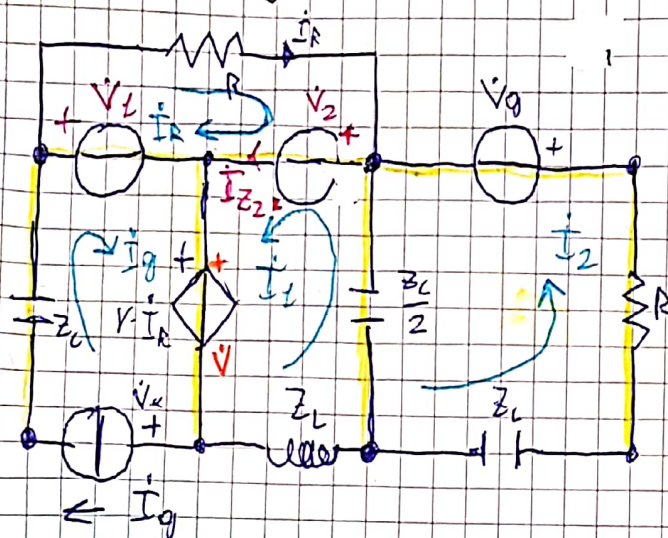 İ_R
R
+ V̇_1
İ_R
V̇_2 +
V̇_g +
İ_Z2
İ_g
+ +
İ_1
İ_2
Z_C
γ·İ_R
V̇
Z_C/2
R
V̇_x +
Z_L
Z_C
← İ_g